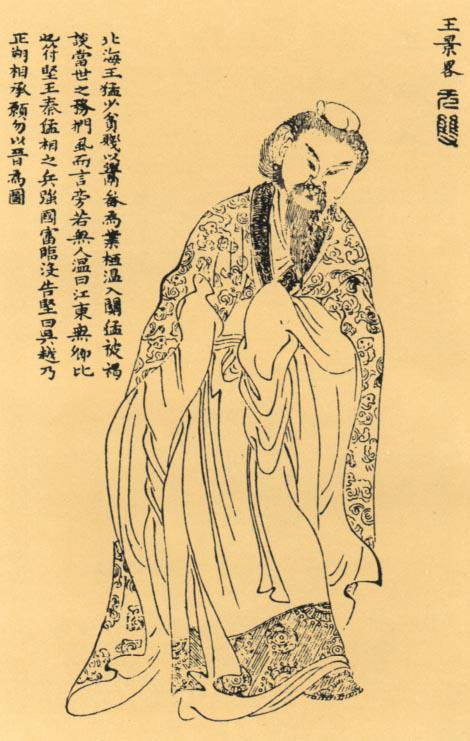 王景畧 无雙
北海王猛少貧賤以鬻畚為業桓温入關猛被褐
談當世之務捫虱而言旁若無人温曰江東無卿比
也符堅王秦猛相之兵強國富臨沒告堅曰吳越乃
正朔相承願勿以晉為圖